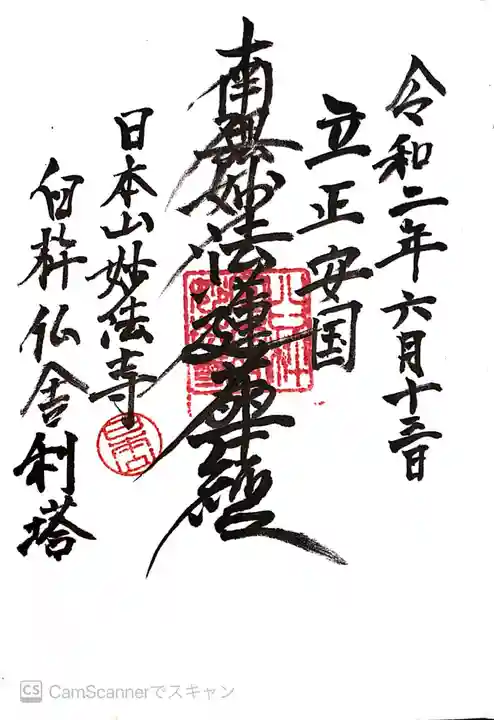 令和二年六月十三日
立正安国
南無妙法蓮華経
日本山妙法寺
臼杵仏舎利塔
CS CamScannerでスキャン